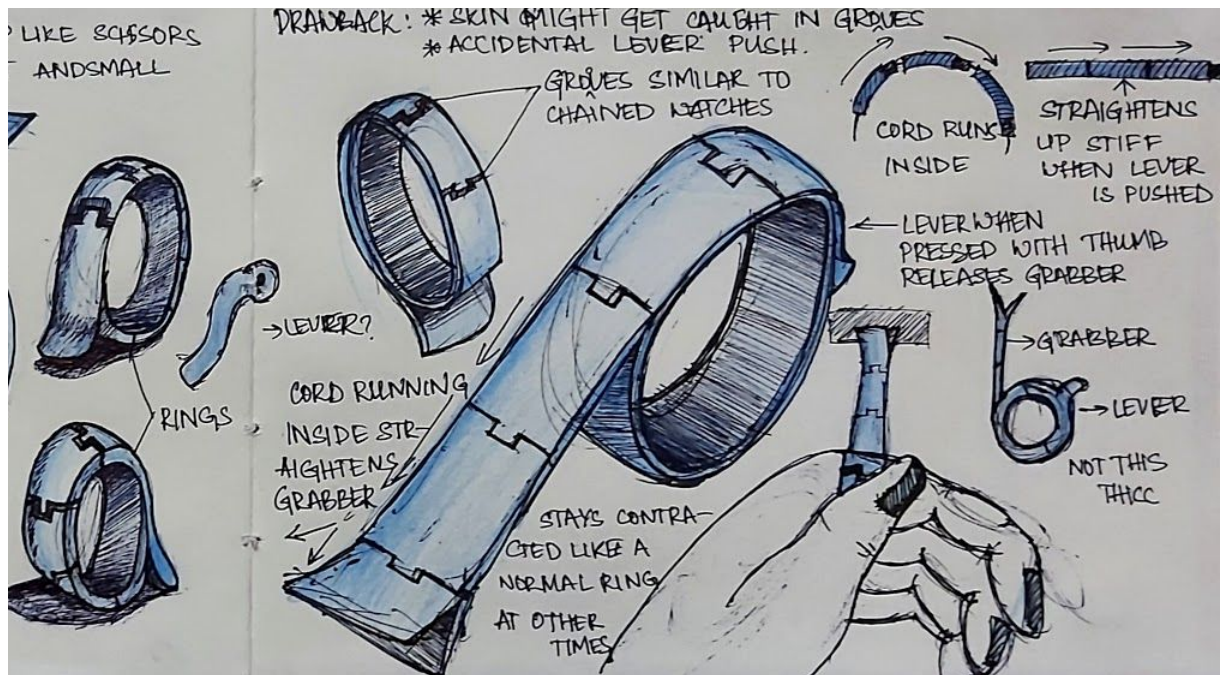 LIKE SCISSORS
ANDSMALL
DRAWBACK: * SKIN MIGHT GET CAUGHT IN GROVES
* ACCIDENTAL LEVER PUSH.
GROVES SIMILAR TO
CHAINED WATCHES
CORD RUNS
INSIDE
STRAIGHTENS
UP STIFF
WHEN LEVER
IS PUSHED
LEVER WHEN
PRESSED WITH THUMB
RELEASES GRABBER
→LEVER?
RINGS
CORD RUNNING
INSIDE STR-
AIGHTENS
GRABBER
STAYS CONTRA-
CTED LIKE A
NORMAL RING
AT OTHER
TIMES
→GRABBER
→LEVER
NOT THIS
THICC